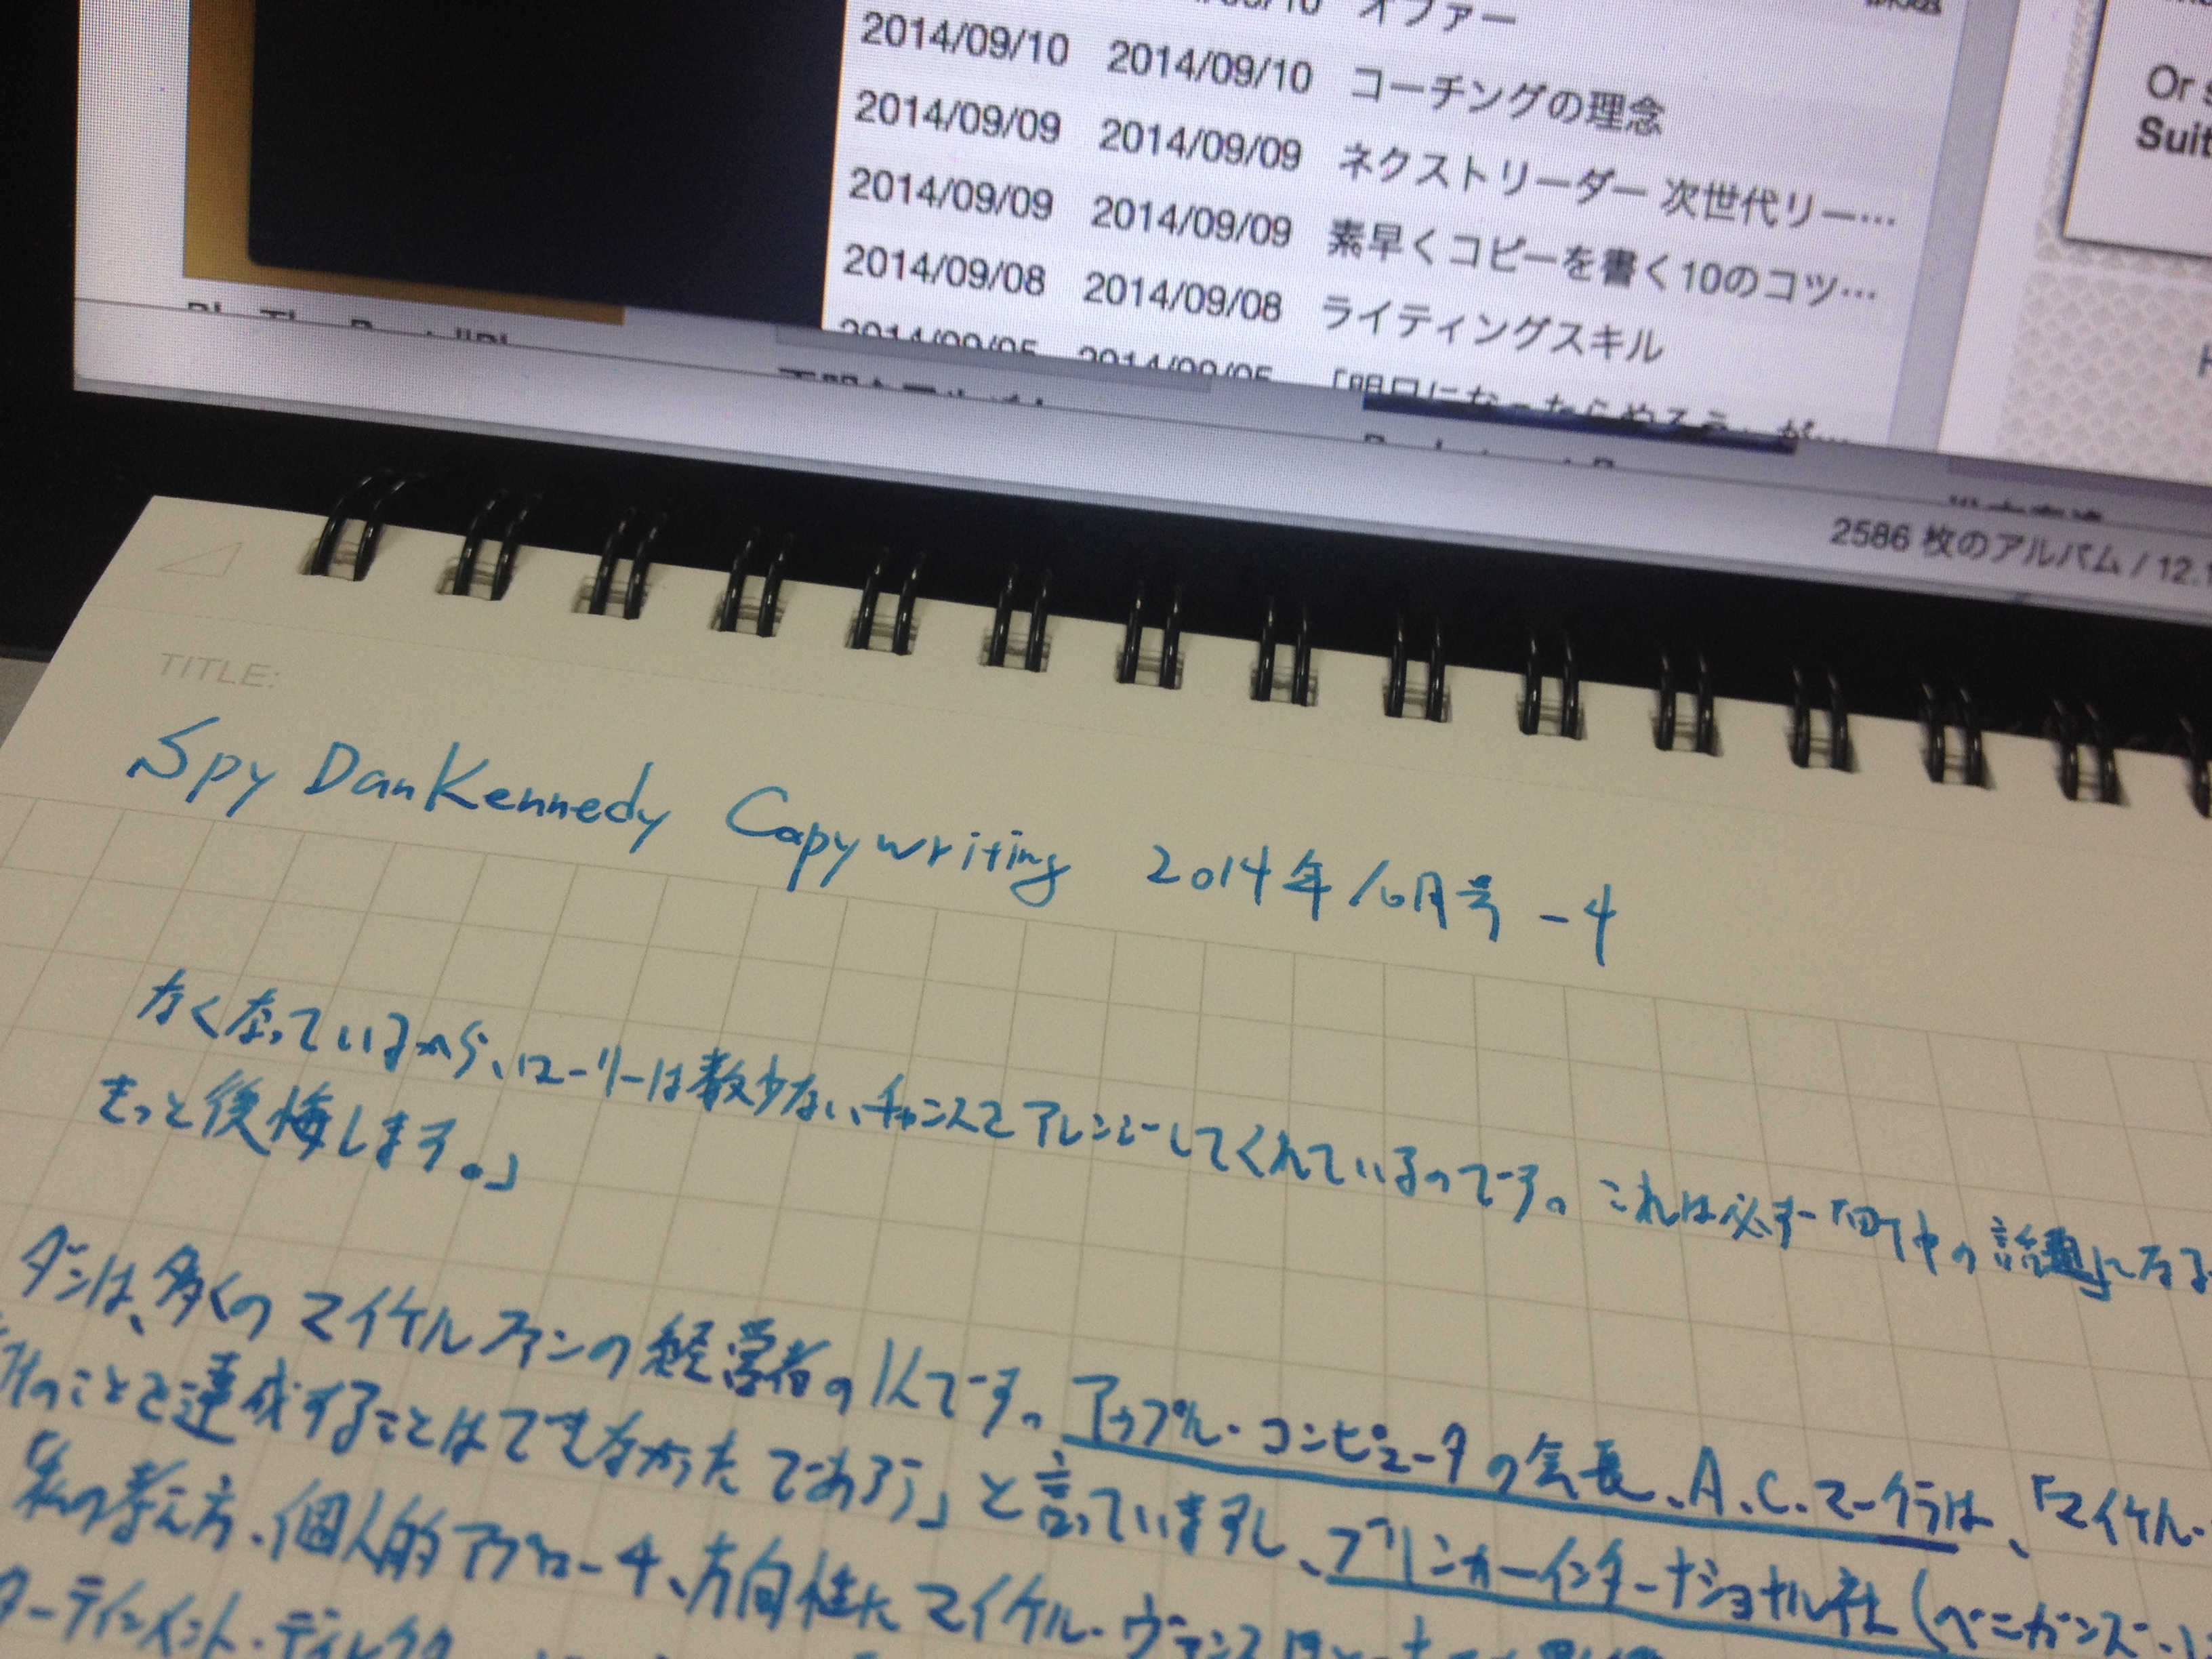 オファー
2014/09/10 2014/09/10 コーチングの理念
2014/09/09 2014/09/09 ネクストリーダー 次世代リー…
2014/09/09 2014/09/09 素早くコピーを書く10のコツ…
2014/09/08 2014/09/08 ライティングスキル
2014/09/05 2014/09/05 「明日になったらやろう」が…
Or
Suit
2586 枚のアルバム / 12.
TITLE:
Spy DanKennedy Copywriting 2014年10月号 -4
なくなっているから、ローリーは数少ないチャンスをアレンジしてくれているのです。これは必ず「町中の話題」になる
きっと後悔します。」
ダンは、多くのマイケルファンの経営者の1人です。アップル・コンピュータの会長、A.C.マークラは、「マイケル・
のことを達成することはできなかったであろう」と言っていますし、ブリンカーインターナショナル社(ベニガンズ・
「私の考え方、個人的アプローチ、方向性に マイケル・ヴァンス
ターテインメント・ディレクター